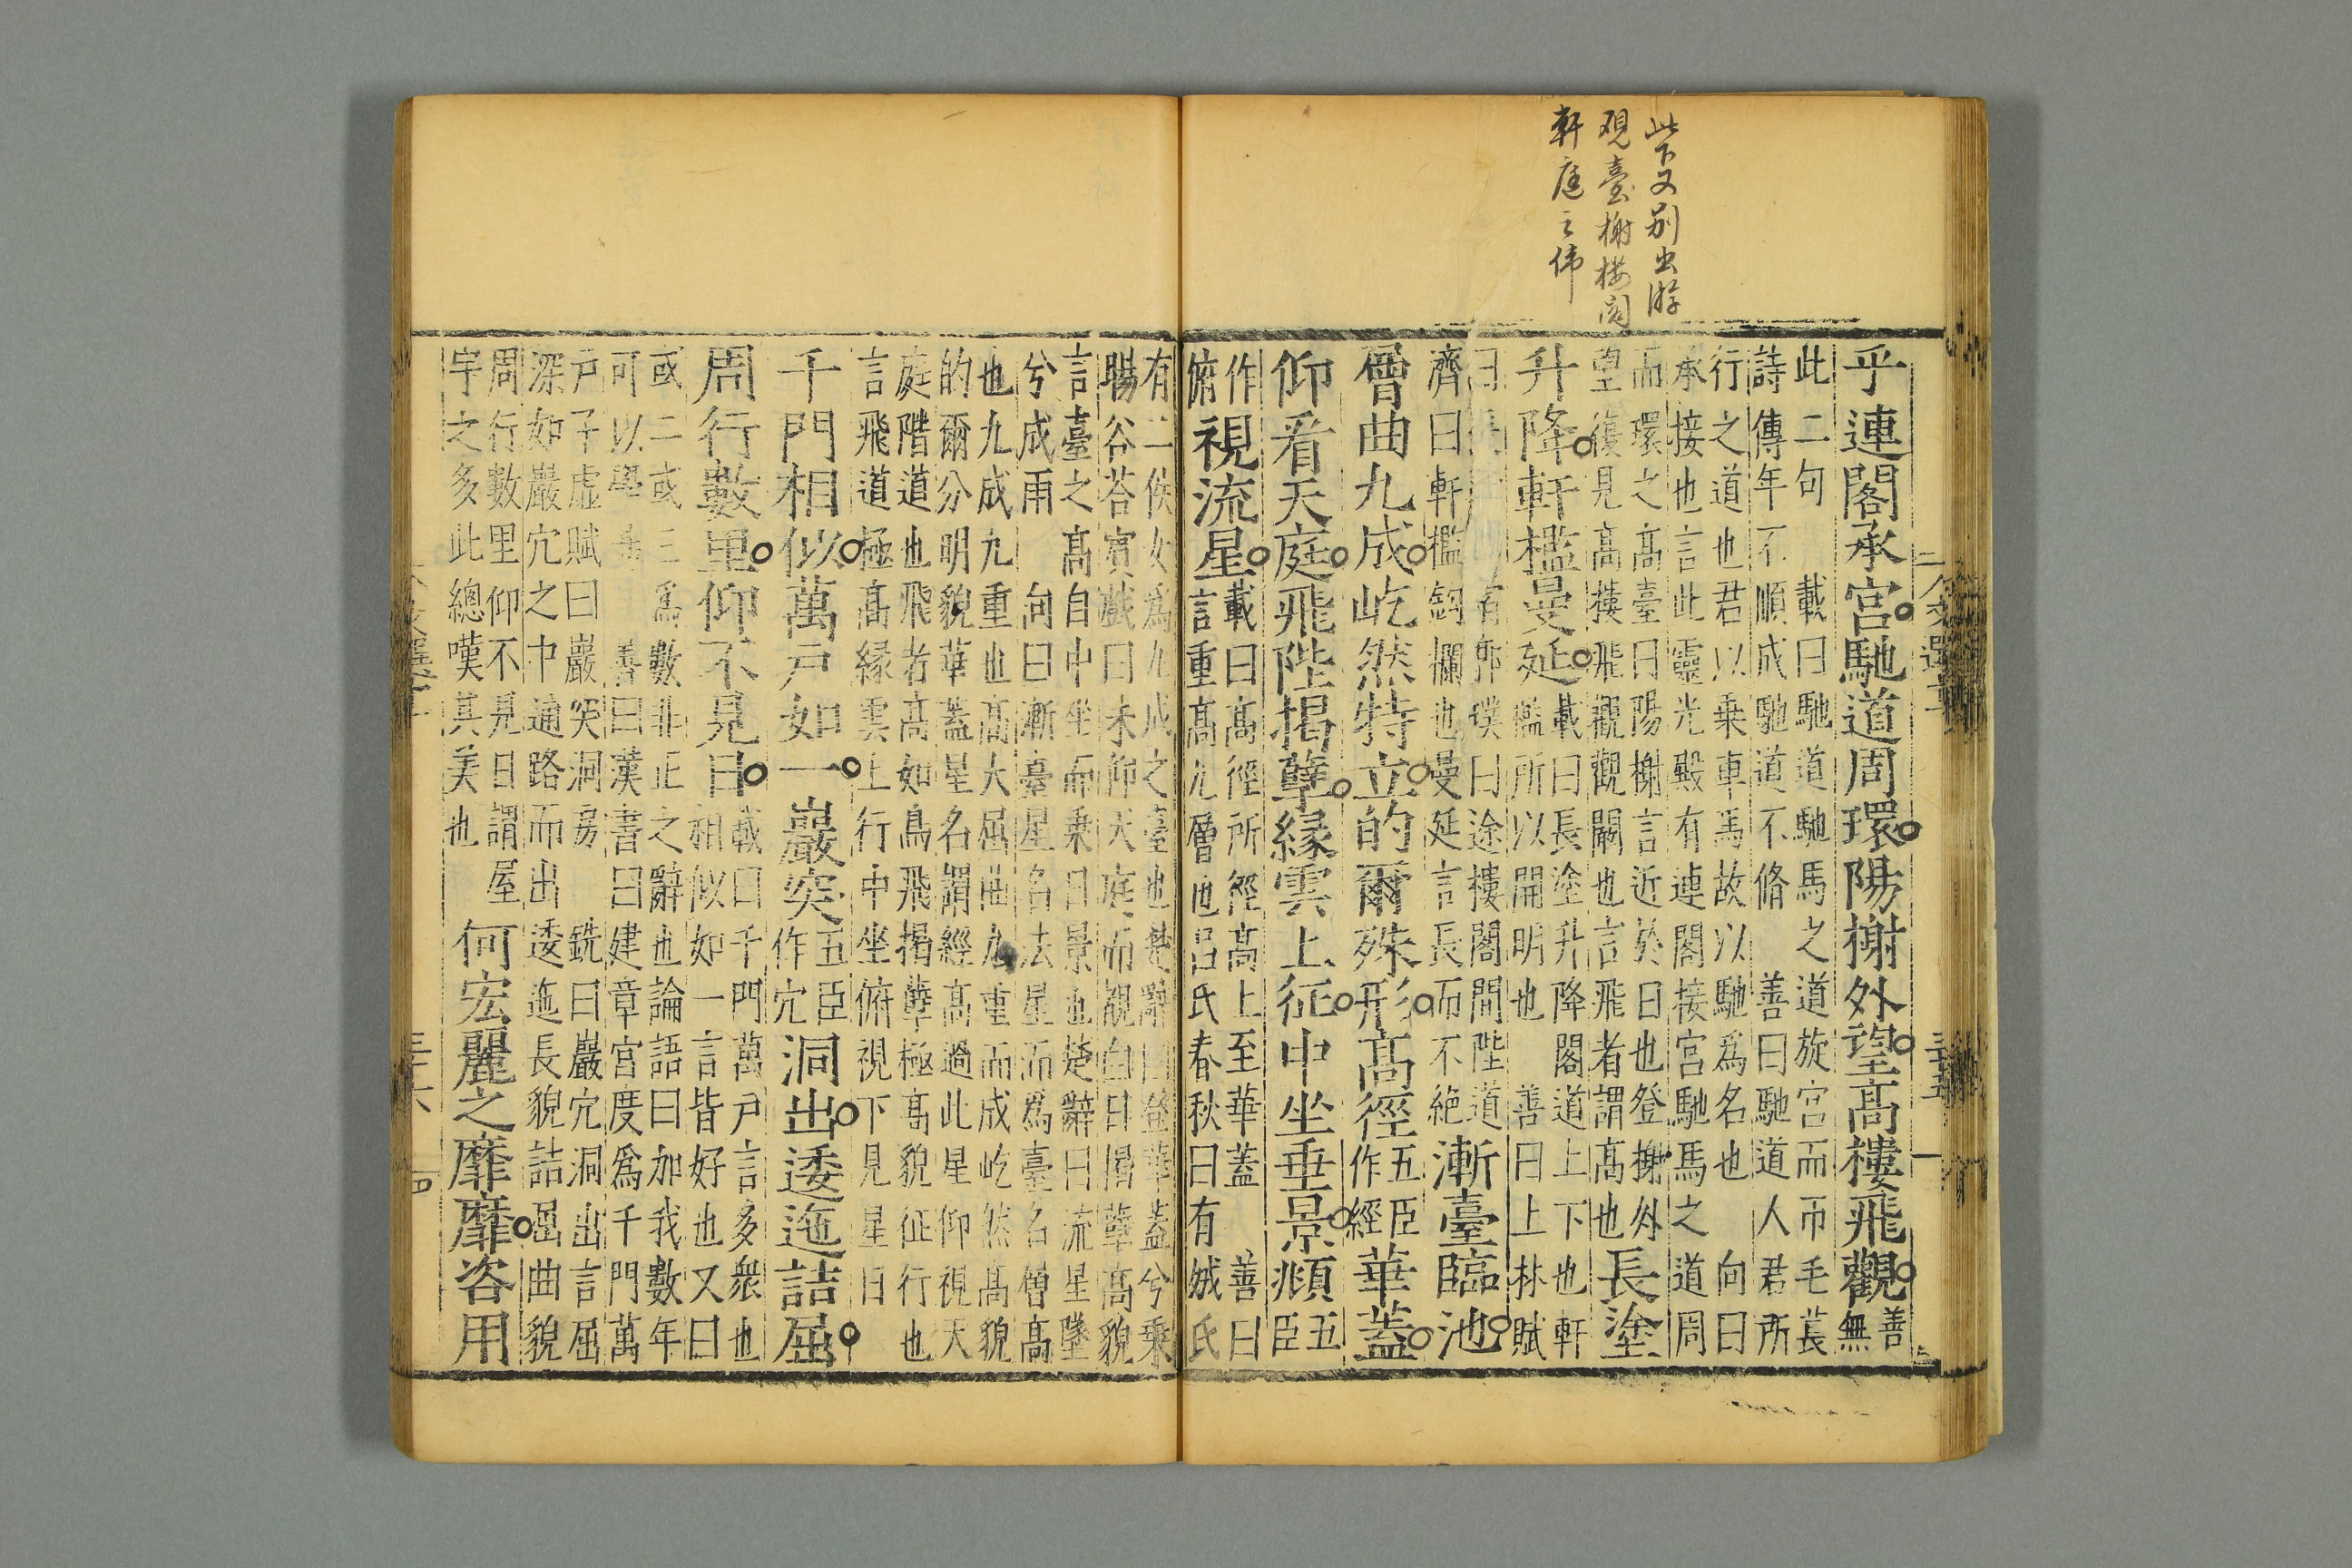 此下又別出游
觀臺榭楼阁
軒庭之偉
乎連閣承宮馳道周環陽榭外望髙樓飛觀善
無
此二句 載曰馳道馳馬之道旋宮而帀毛萇
詩傳年不順成馳道不脩 善曰馳道人君所
行之道也君以乗車馬故以馳爲名也 向曰
承接也言此靈光殿有連閣接宮馳馬之道周
而環之髙臺曰陽榭言近於日也登榭外
望復見髙樓飛觀觀闕也言飛者謂髙也長塗
升降軒檻曼延載曰長塗升降閣道上下也軒
檻所以開明也 善曰上林賦
郭璞曰途樓閣間陛道
齊曰軒檻鉤欄也曼延言長而不絶漸臺臨池
曾曲九成屹然特立的爾殊形髙徑五臣
作經華蓋
仰看天庭飛陛揭孽縁雲上征中坐垂景頫五
臣
作
俯視流星載曰髙徑所徑髙上至華蓋 善曰
言重髙九層也吕氏春秋曰有娀氏
有二佚女爲九成之臺也楚辭曰登華蓋兮乗
暘谷荅賓戲曰未仰天庭而覩白日揭孽髙貌
言臺之髙自中坐而乗日景也楚辭曰流星墜
兮成雨 向曰漸臺星名法星而爲臺名曾髙
也九成九重也髙大屈曲九重而成屹然髙貌
的爾分明貌華蓋星名謂經髙過此星仰視天
庭階道也飛者髙如鳥飛揭孽極髙貌征行也
言飛道極髙縁雲上行中坐俯視下見星日
千門相似萬戸如一巖突五臣
作穴洞出逶迤詰屈
周行數里仰不見日載曰千門萬戸言多衆也
相似如一言皆好也又曰
或二或三爲數非正之辭也論語曰加我數年
可以學 善曰漢書曰建章宮度爲千門萬
戸子虛賦曰巖突洞房 銑曰巖穴洞出言屈
深如巖穴之中通路而出逶迤長貌詰屈曲貌
周行數里仰不見日謂屋
宇之多此總嘆其美也何宏麗之靡靡咨用